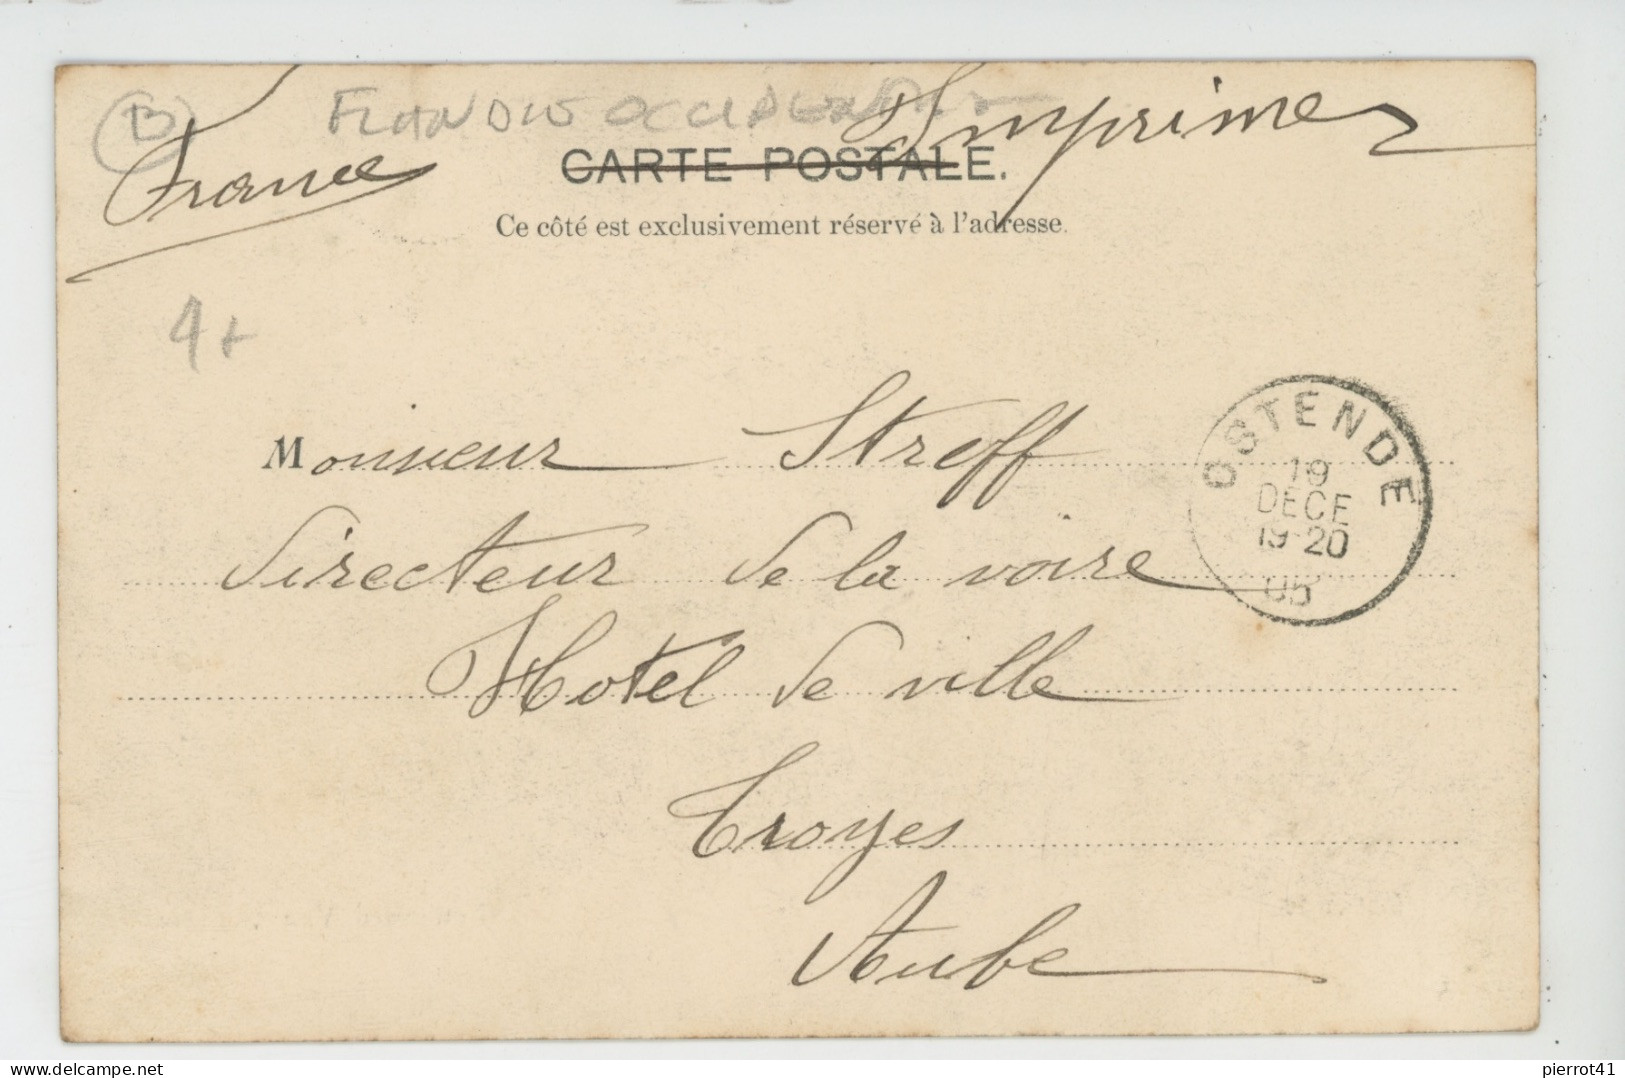 B
FLANDRE OCCIDENTALE
France
Imprimé
CARTE POSTALE.
Ce côté est exclusivement réservé à l'adresse.
4+
Monsieur Streff
OSTENDE
19
DECE
19-20
05
directeur de la voire
Hotel de ville
Troyes
Aube
www.delcampe.net
pierrot41